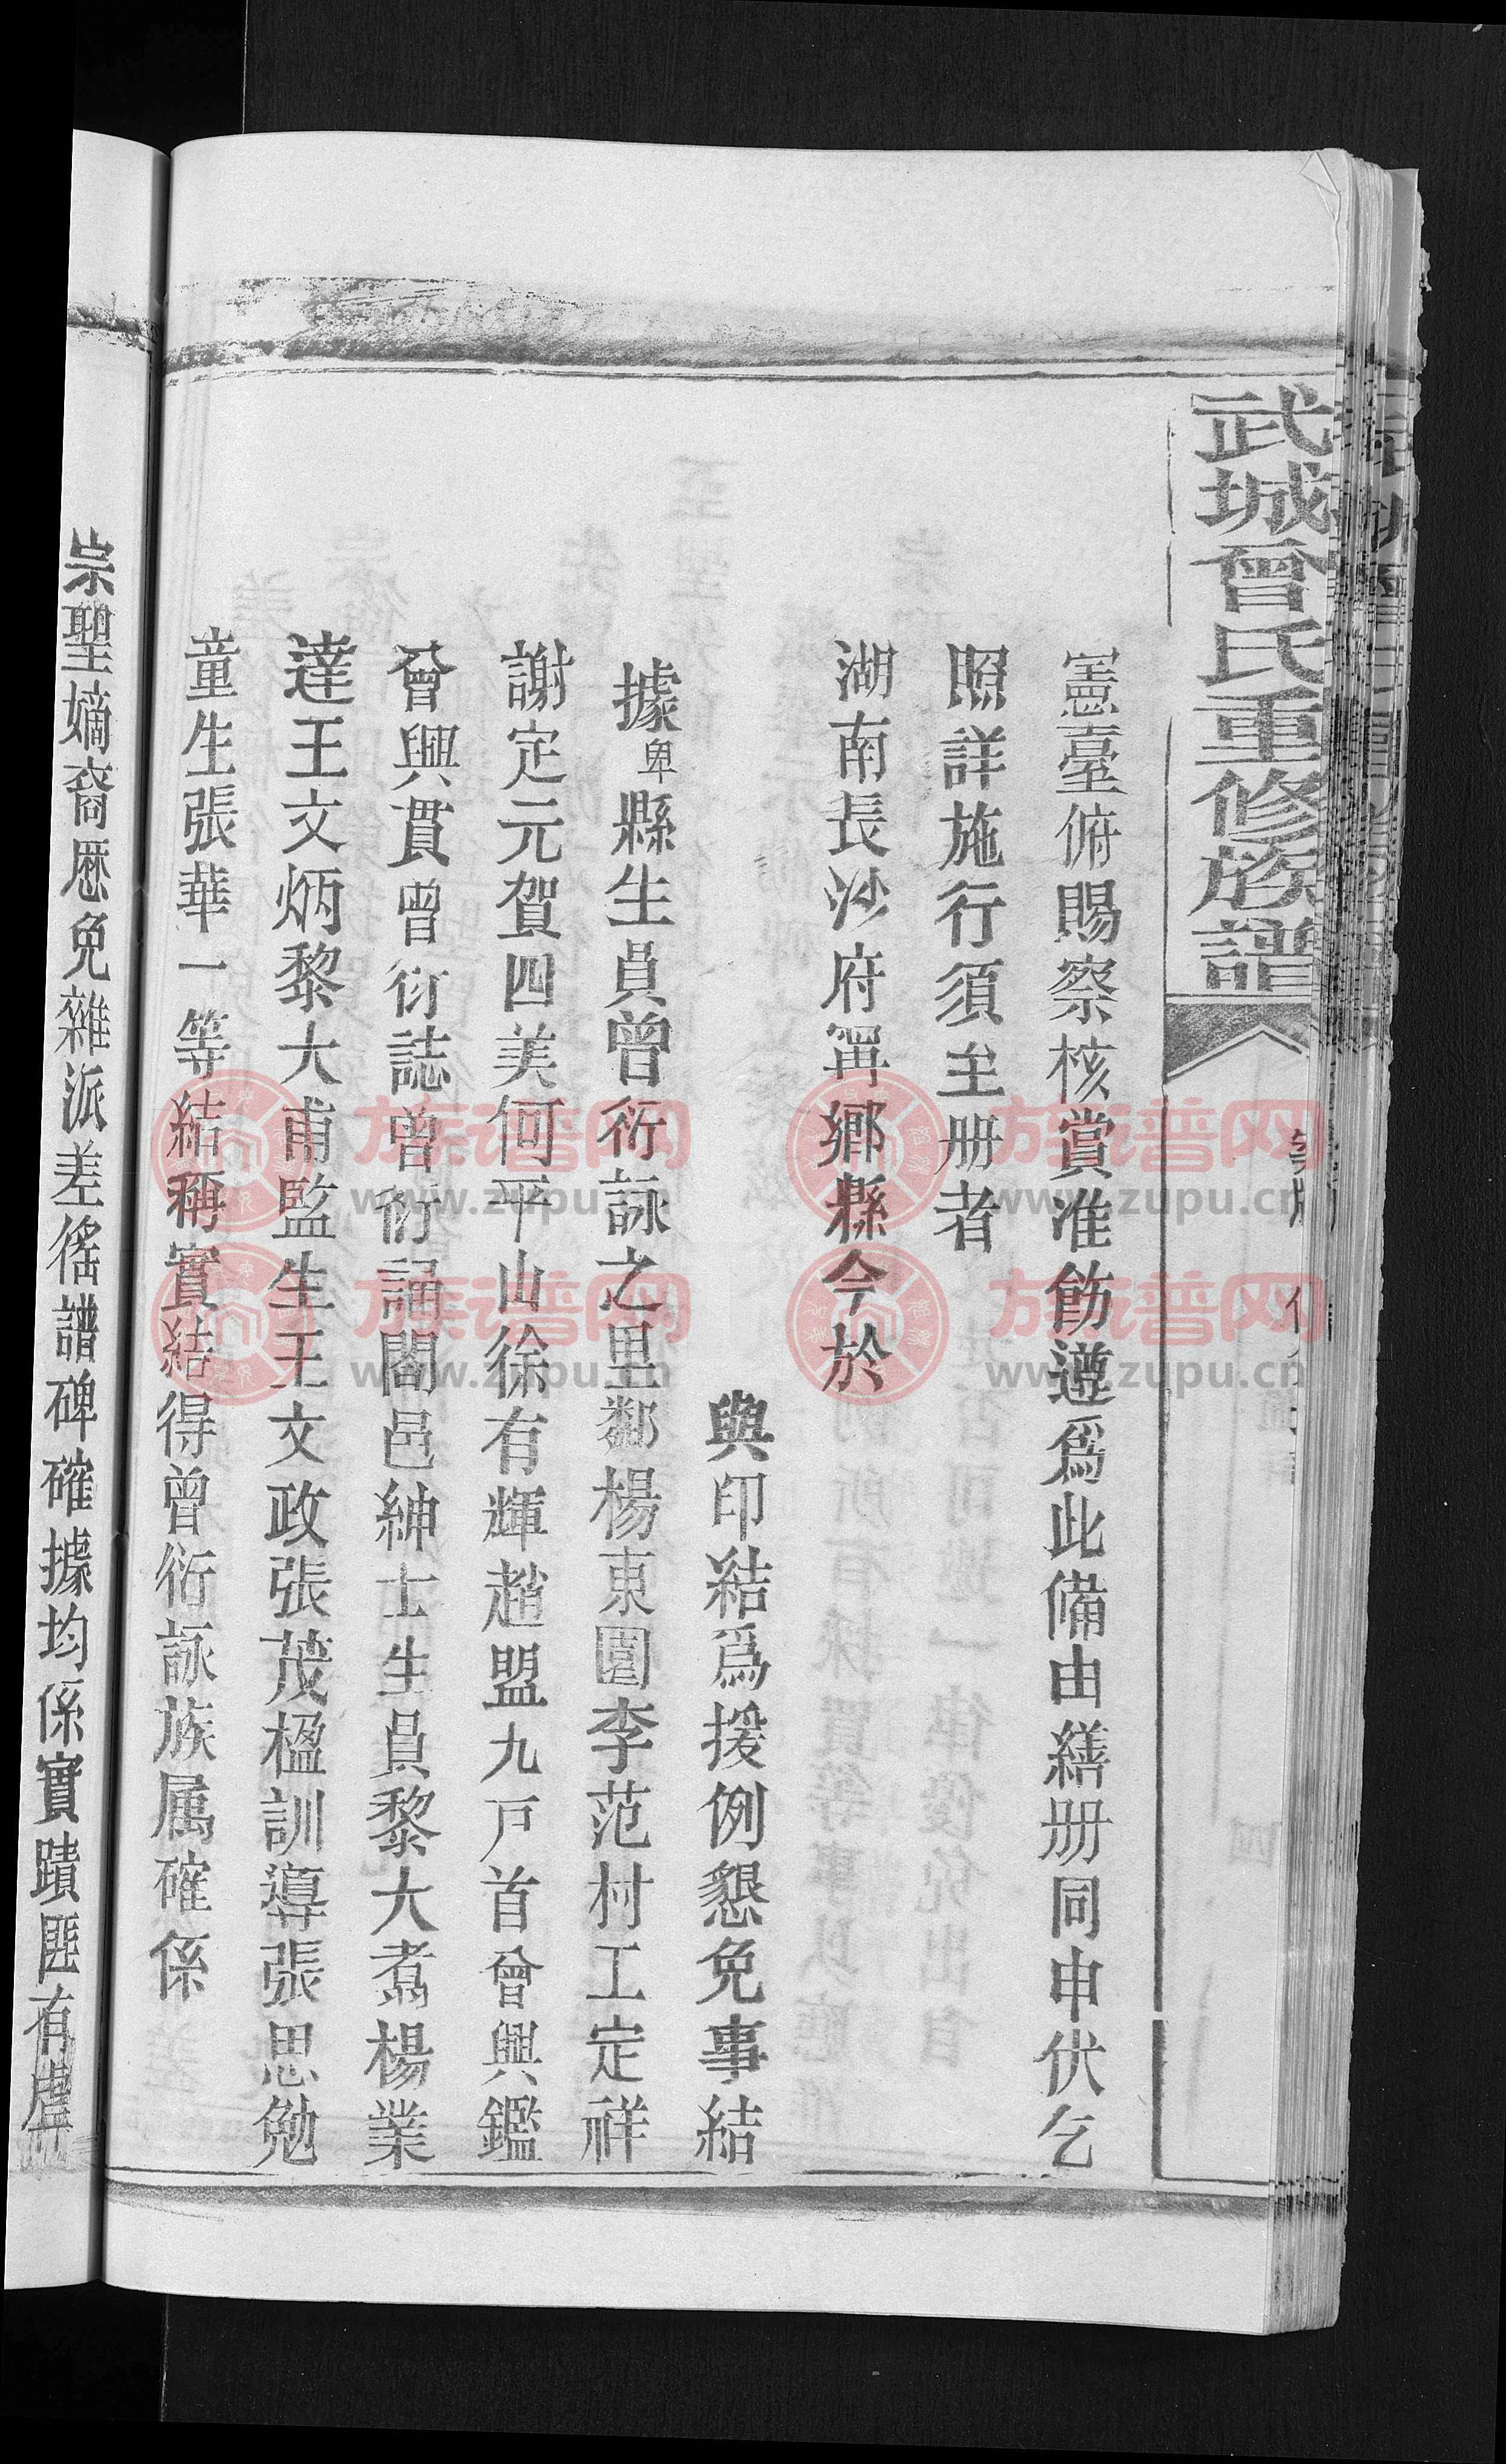 武城曾氏重修族譜
憲臺俯賜察核賞准飭遵爲此備由繕册同申伏乞
照詳施行須至册者
湖南長沙府甯鄉縣今於
與印結爲援例懇免事結
據卑縣生員曾衍詠之里鄰楊東園李范村工定祥
謝定元賀四美何平山徐有輝趙盟九戸首曾興鑑
曾興貫曾衍誌曾衍誦閤邑紳士生員黎大翥楊業
達王文炳黎大甫監生王文政張茂楹訓導張思勉
童生張華一等結稱實結得曾衍詠族属確係
宗聖嫡裔歷免雜派差徭譜碑確據均係實蹟匪有虛
族谱网
www.zupu.cn
族谱网
www.zupu.cn
族谱网
www.zupu.cn
族谱网
www.zupu.cn